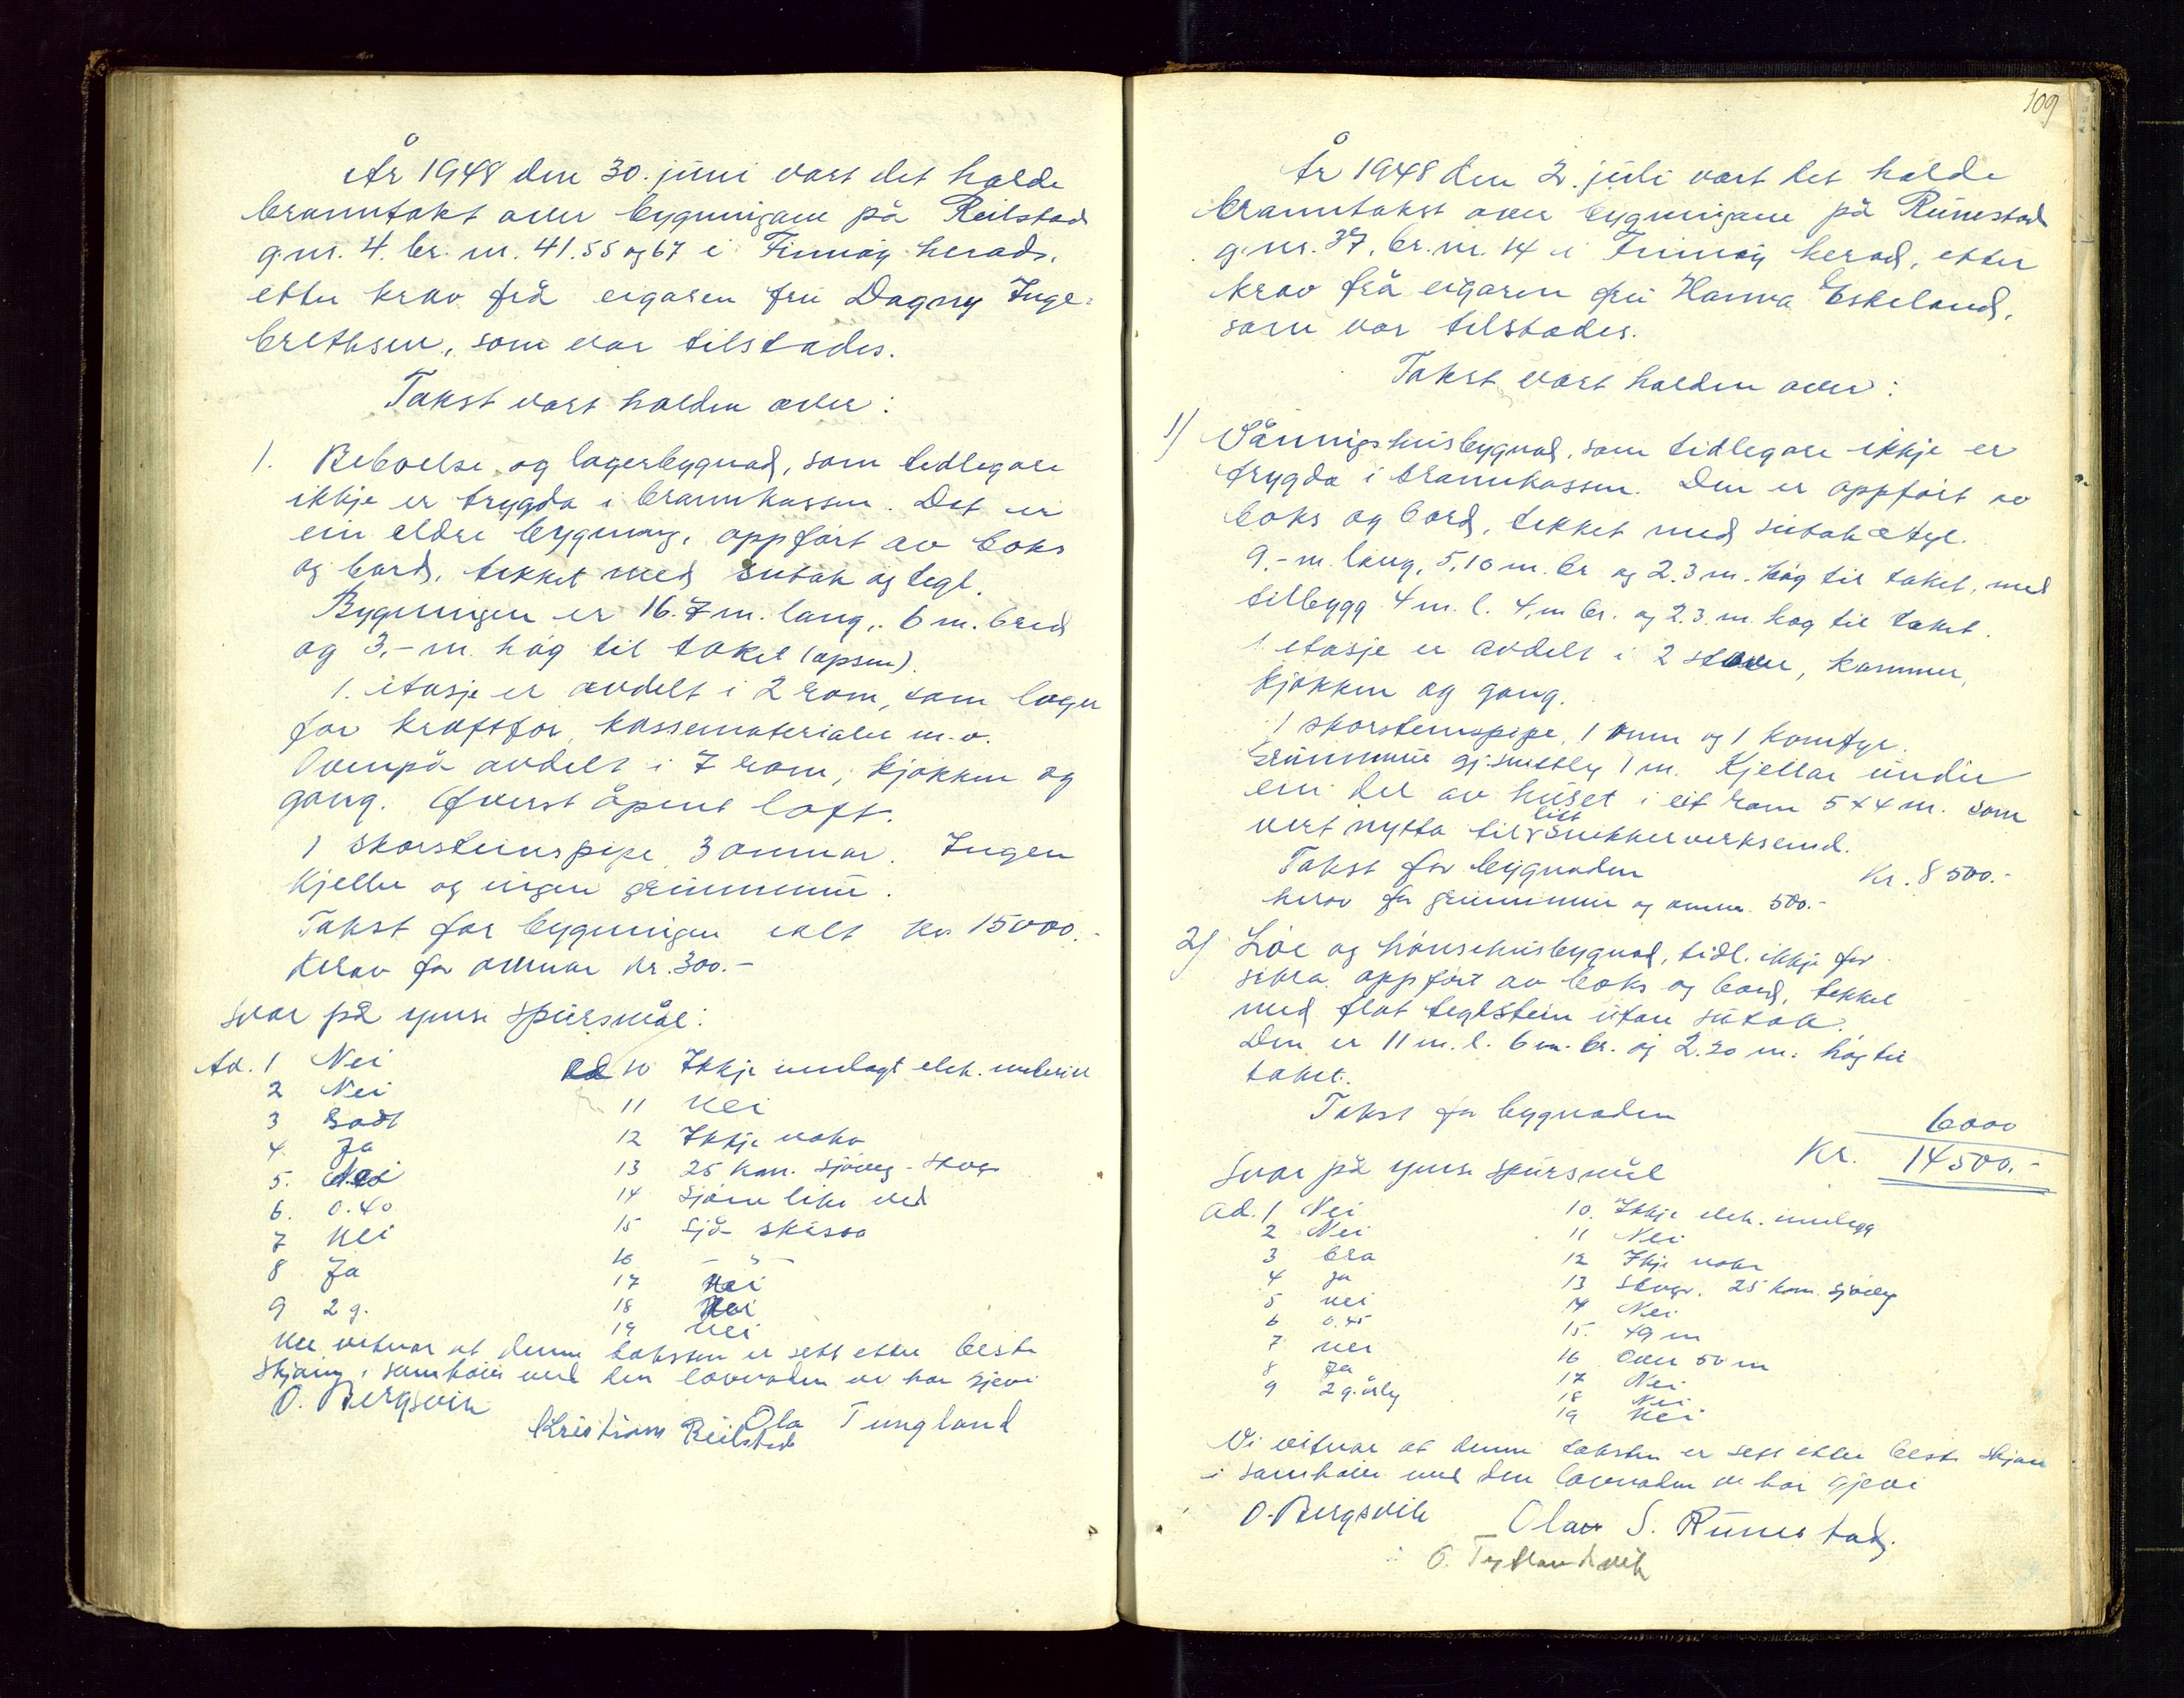 År 1948 den 30. juni vart det halde
branntakst over bygningane på Reilstad
g.nr. 4. br. nr. 41.55 og 67 i Finnøy herad,
etter krav frå eigaren frú Dagny Inge-
brethsen, som var tilstades.
Takst vart halden over:
1. Beboelse og lagerbygnad, som tidlegare
ikkje er trygda i brannkassen. Det er
ein eldre bygning, oppført av boks
og bord, tekket med sutak og tegl.
Bygningen er 16.7 m. lang, 6 m. bred
og 3,- m. høg til taket (opsen).
1. etasje er avdelt i 2 rom, som lager
for kraftfor, kassematerialer m.v.
Ovenpå avdelt i 7 rom, kjøkken og
gang. Øverst åpent loft.
1 skorsteinspipe, 3 omnar. Ingen
kjeller og ingen grunnmur.
Takst for bygningen ialt kr 15000.-
Herav for omnar kr. 300.-
Svar på ymse spursmål:
Ad. 1 Nei
2 Nei
3 Godt
4. Ja
5. Nei
6. 0.40
7 Nei
8 Ja
9 2 g.
ad 10 Ikkje innlagt elek.
11 Nei
12 Ikkje vakt
13 25 km. sjøveg - Stvgr
14 Sjøen like ved
15 Sjå skissa
16 - " -
17 Nei
18 Nei
19 Nei
Me vitnar at denne taksten er sett etter beste
skjøn, i samhøve med den lovnaden vi har gjevi
O. Bergsvik
Kristian Reilstad Ola Tungland
109
År 1948 den 2. juli vart det halde
branntakst over bygningane på Runestad
g.nr. 37, br. nr. 14 i Finnøy herad, etter
krav frå eigaren frú Hanna Eskeland,
som var tilstades.
Takst vart halden over:
1) Våningshusbygnad, som tidlegare ikkje er
trygda i brannkassen. Den er oppført av
boks og bord, tekket med sutak & tgl.
9,- m. lang, 5,10 m. br og 2.3 m. høg til taket, med
tilbygg 4 m. l. 4, m br. og 2.3. m. høg til taket.
1 etasje er avdelt i 2 stover, kammer,
kjøkken og gang.
1 skorsteinspipe, 1 omn og 1 komfyr.
Grunnmur gj.snittleg 1 m. Kjellar under
ein del av huset i eit rom 5 x 4 m. som
vert nytta til litt snikkerverksemd.
Takst for bygnaden Kr. 8500.-
herav for grunnmur og omnar 500.-
2) Löe og hønsehusbygnad, tidl. ikkje for-
sikra. oppført av boks og bord, tekket
med flat teglstein utan sutak.
Den er 11 m. l. 6 m. br. og 2.20 m. høg til
taket.
Takst for bygnaden 6000
Kr. 14500.-
Svar på ymse spursmål
ad. 1 Nei
2 Nei
3 bra
4 ja
5 nei
6 0.45
7. nei
8 Ja
9 2 g. årleg
10. Ikkje elek. innlegg
11 Nei
12 Ikje vakt
13 Stvgr. 25 km. sjøveg
14 Nei
15. 49 m
16 Over 50 m
17 Nei
18 Nei
19 Nei
Vi vitnar at denne taksten er sett etter beste skjøn
i samhøve med den lovnaden vi har gjevi
O. Bergsvik Olav S. Runestad.